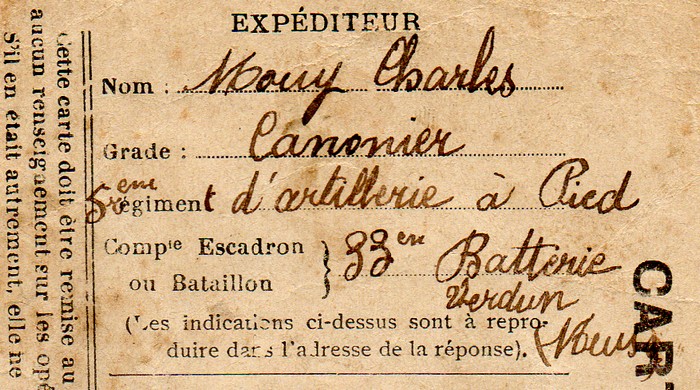 EXPÉDITEUR
Nom : Mouy Charles
Grade : Canonier
5eme régiment d'artillerie à Pied
Compie Escadron
ou Bataillon } 33en Batterie
Verdun
(Les indications ci-dessus sont à repro-
duire dans l'adresse de la réponse). (Meus
Cette carte doit être remise au
aucun renseignement sur les opé
S'il en était autrement, elle ne
CART